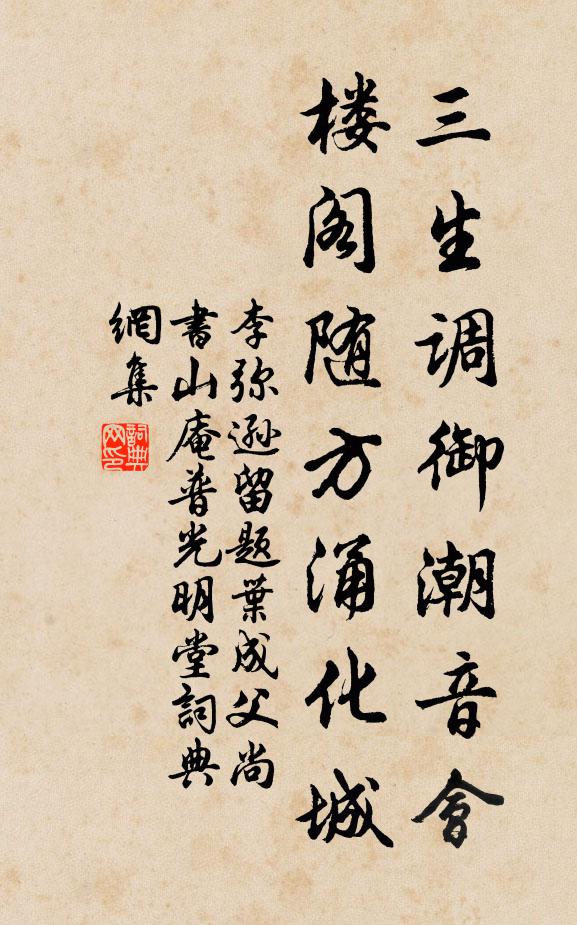 三生调御潮音會
楼阁随方涌化城
李弥逊留题葉成父尚
書山庵普光明堂詞典
網集
詞典
网印